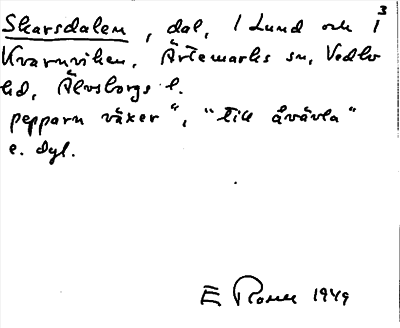 Skarsdalen, dal, / Lund och i 3
Kvarnviken, Ärtemarks sn, Vedbo
hd, Älvsborgs l.
pepparn växer", "till åvävla"
e. dyl.
E 1949